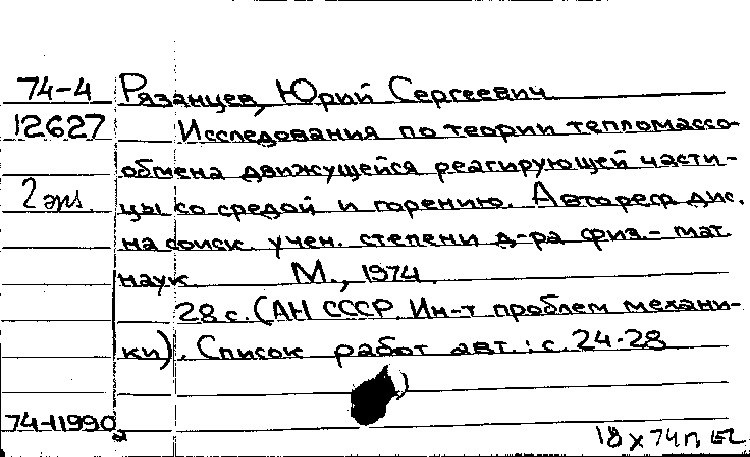 74-4 Рязанцев, Юрий Сергеевич
12627 Исследования по теории тепломассо-
обмена движущейся реагирующей части-
2 экз. цы со средой и горению. Автореф. дис.
на соиск. учен. степени д-ра физ.-мат.
наук М., 1974.
28 с. (АН СССР. Ин-т проблем механи-
ки). Список работ авт.: с. 24-28
74-11990
18 X 74 г.